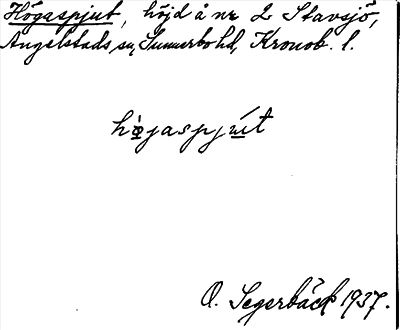 Högaspjut, höjd å nr 2 Stavsjö,
Angelstads sn, Sunnerbo hd, Kronob. l.
högaspjút
O. Segerbäck 1937.